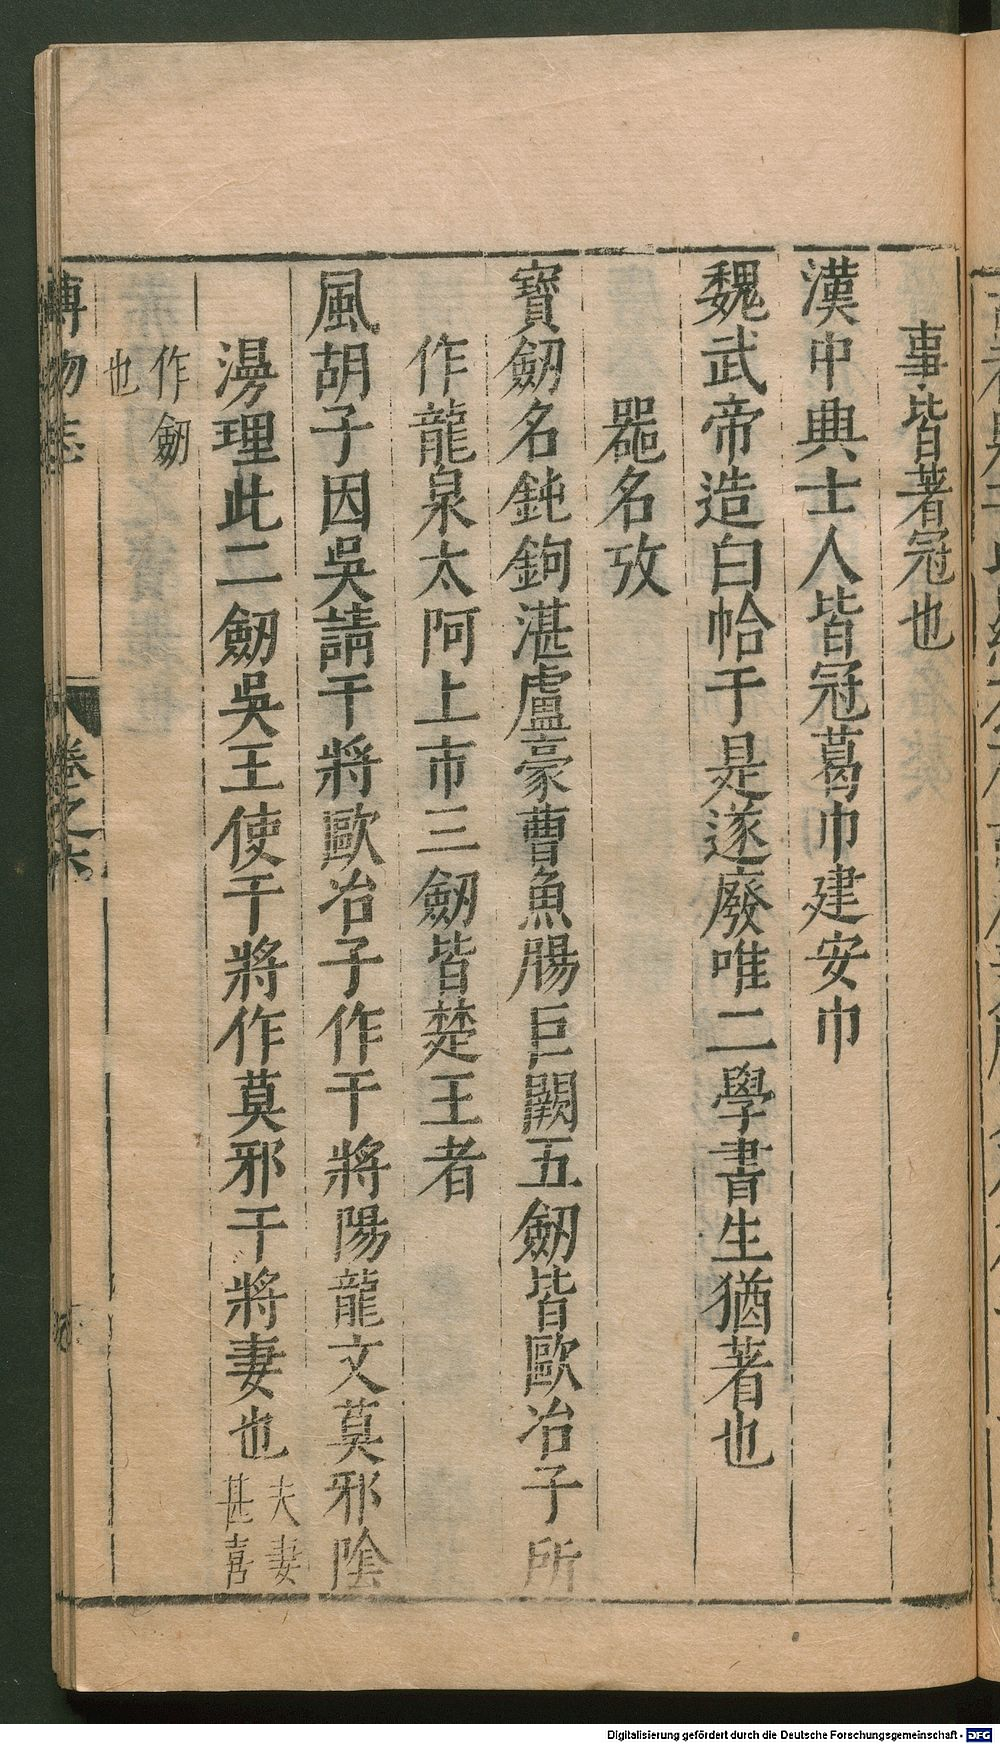 事皆著冠也
漢中興士人皆冠葛巾建安巾
魏武帝造白帢于是遂廢唯二學書生猶著也
器名攷
寶劒名鈍鉤湛盧豪曹魚膓巨闕五劒皆歐冶子所
作龍泉太阿上市三劒皆楚王者
風胡子因吳請干將歐冶子作干將陽龍文莫邪陰
漫理此二劒吳王使干將作莫邪干將妻也夫妻甚喜
作劒也
博物志 卷之六
Digitalisierung gefördert durch die Deutsche Forschungsgemeinschaft - DFG